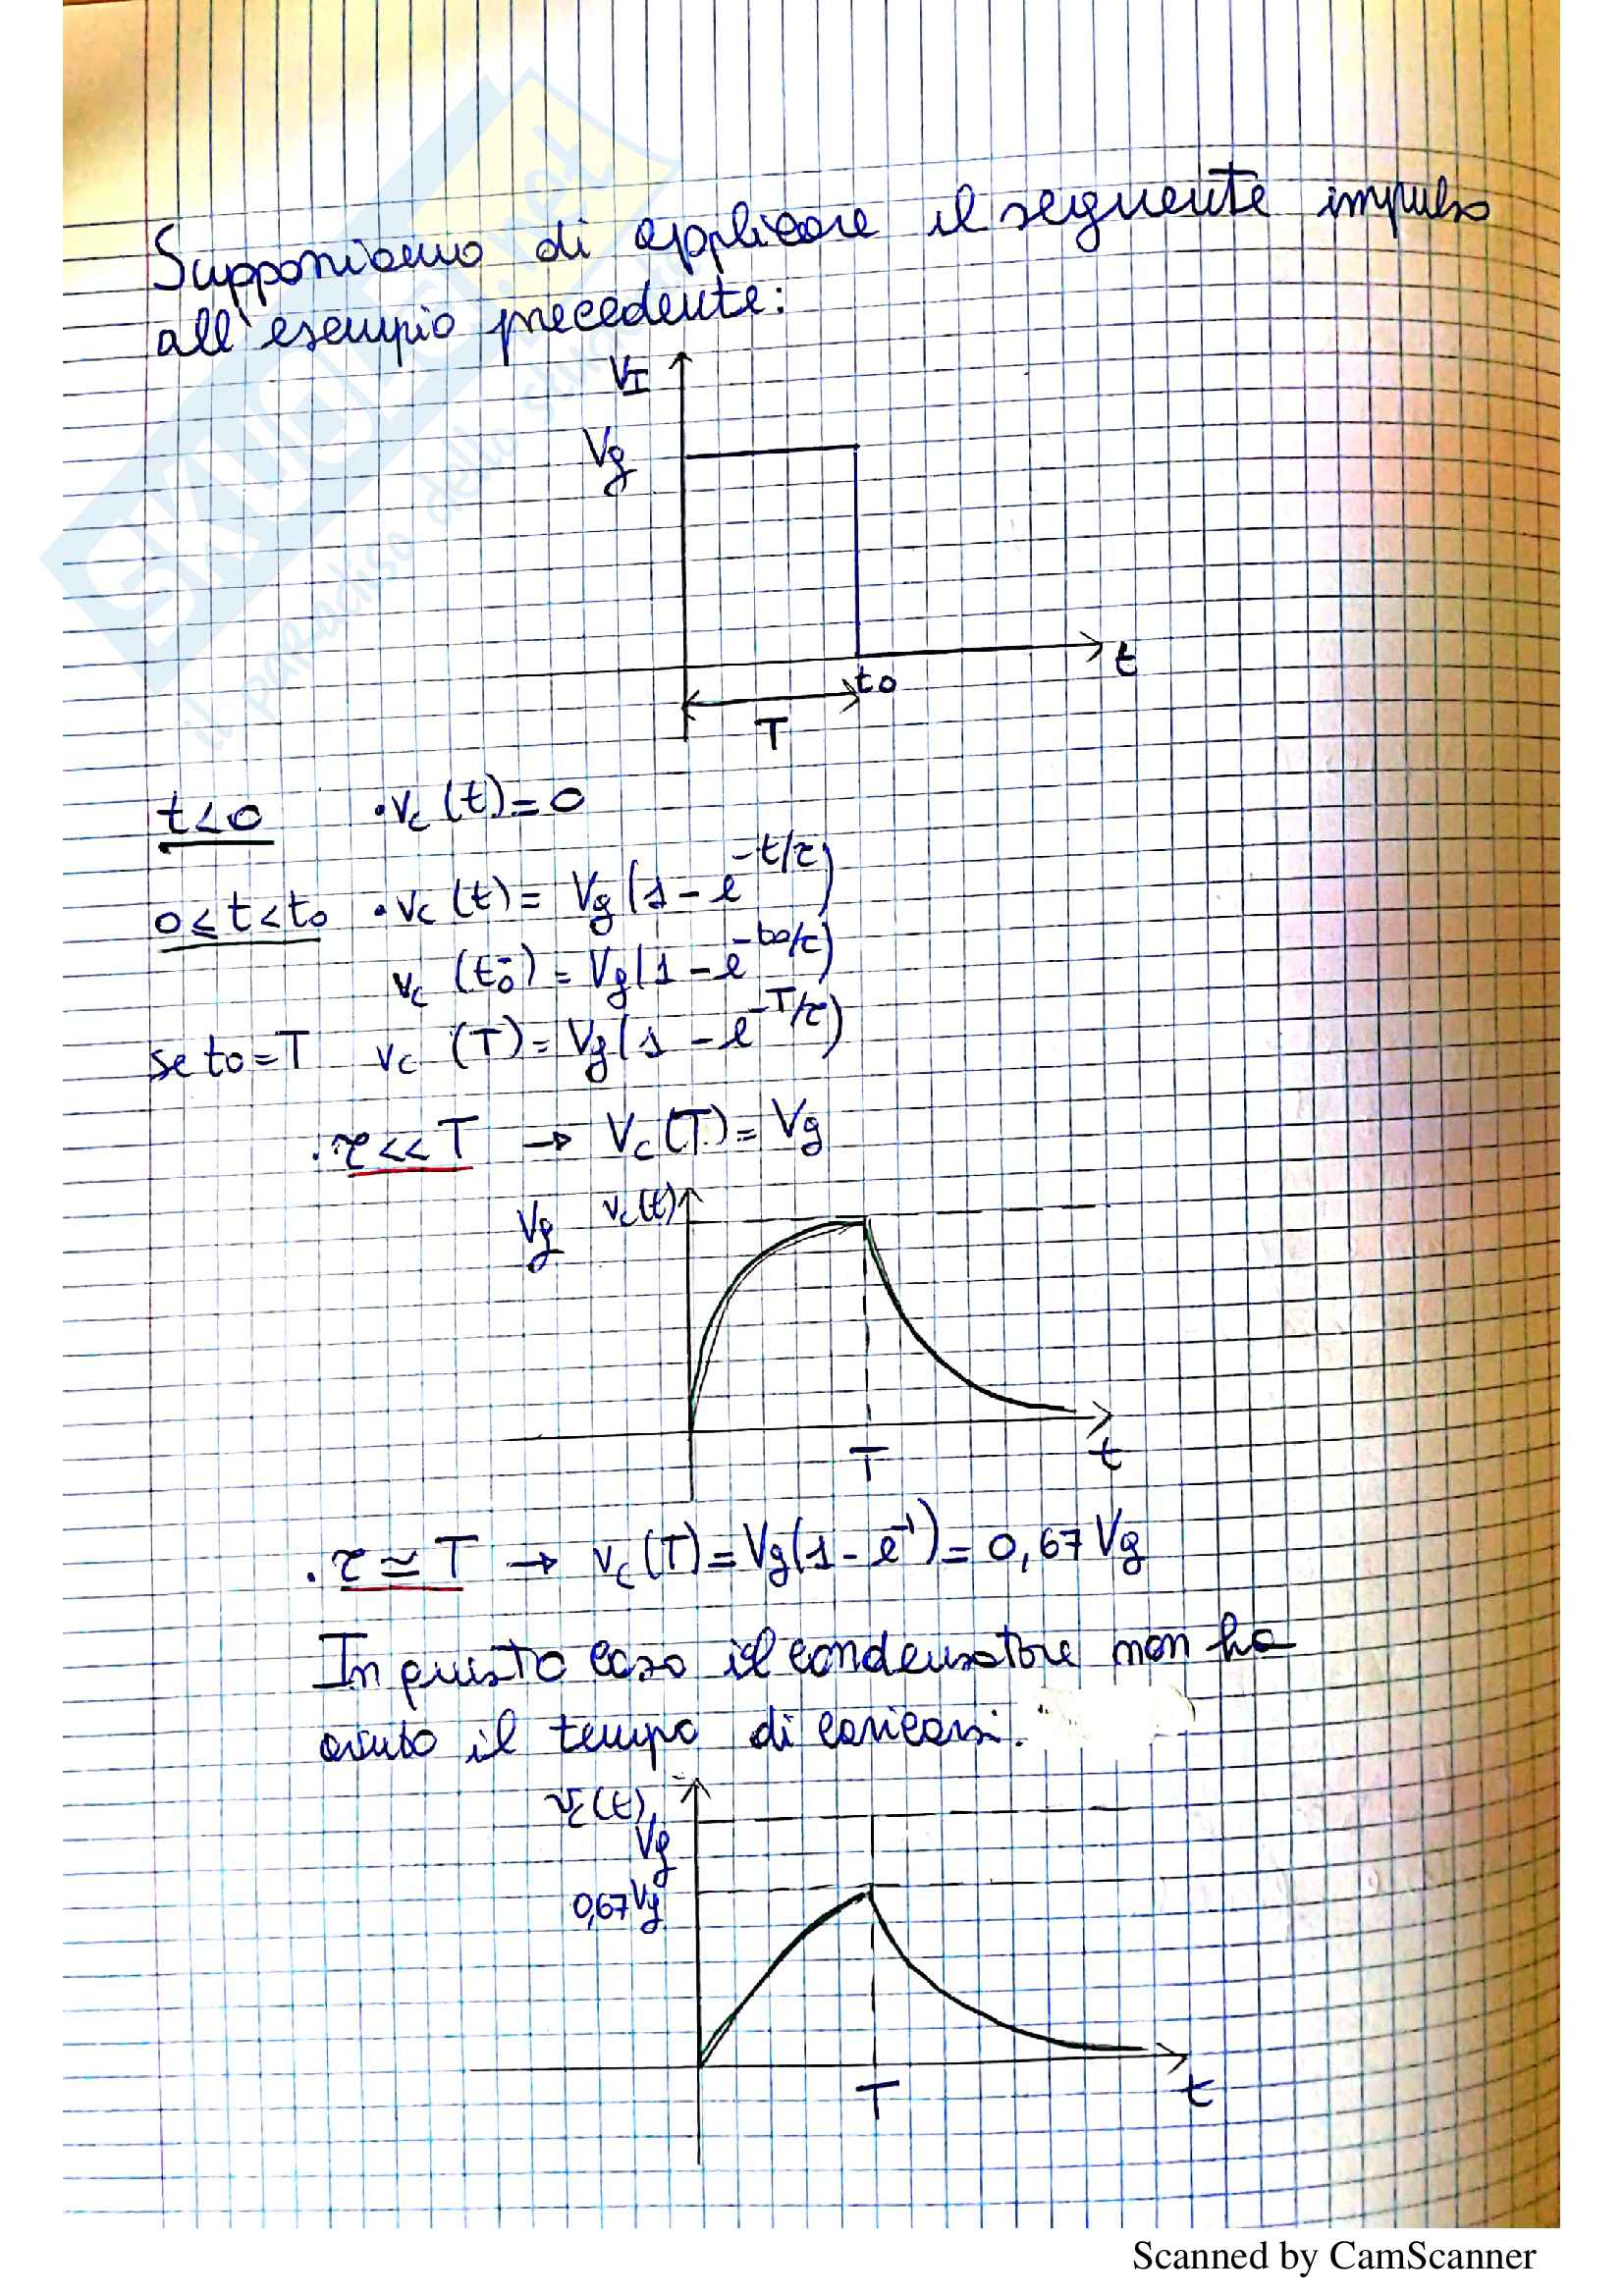 Supponiamo di applicare il seguente impulso
all'esempio precedente:
VI
Vg
t
t0
T
t<0 • vc (t) = 0
0 ≤ t < t0 • vc (t) = Vg (1 - e^-t/τ)
vc (t0^-) = Vg (1 - e^-t0/τ)
se t0 = T vc (T) = Vg (1 - e^-T/τ)
. τ << T → Vc (T) = Vg
Vg vc(t)
T t
. τ ≃ T → vc (T) = Vg (1 - e^-1) = 0,67 Vg
In questo caso il condensatore non ha
avuto il tempo di caricarsi.
vc(t)
Vg
0,67 Vg
T t
SKUOLA.net
il paradiso dello studente
Scanned by CamScanner